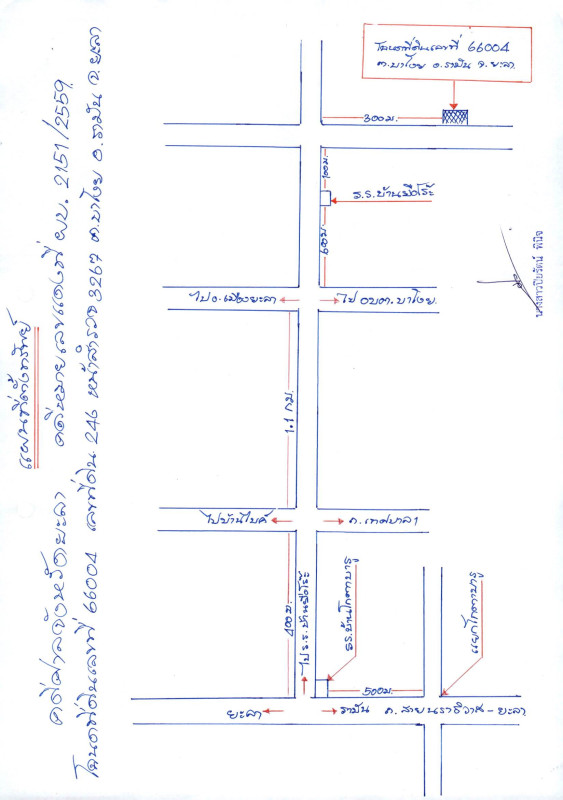 แผนที่ตั้งทรัพย์
คดีศาลจังหวัดยะลา คดีหมายเลขแดงที่ ผบ. 2151/2559
โฉนดที่ดินเลขที่ 66004 เลขที่ดิน 246 หน้าสำรวจ 3267 ต.บาโงย อ.รามัน จ.ยะลา
โฉนดที่ดินเลขที่ 66004
ต.บาโงย อ.รามัน จ.ยะลา
300 ม.
100 ม.
ร.ร.บ้านปีโร๊ะ
600 ม.
ไป อ.เมืองยะลา
ไป อบต.บาโงย
1.1 กม.
ไปบ้านไบก์
ถ.เทศบาล 1
400 ม.
ไป ร.ร.บ้านปีโร๊ะ
รร.บ้านโกตาบารู
แยกโกตาบารู
500 ม.
ยะลา
รามัน
ถ.สายนราธิวาส-ยะลา
นางสาวปิยรัตน์ พินิจ